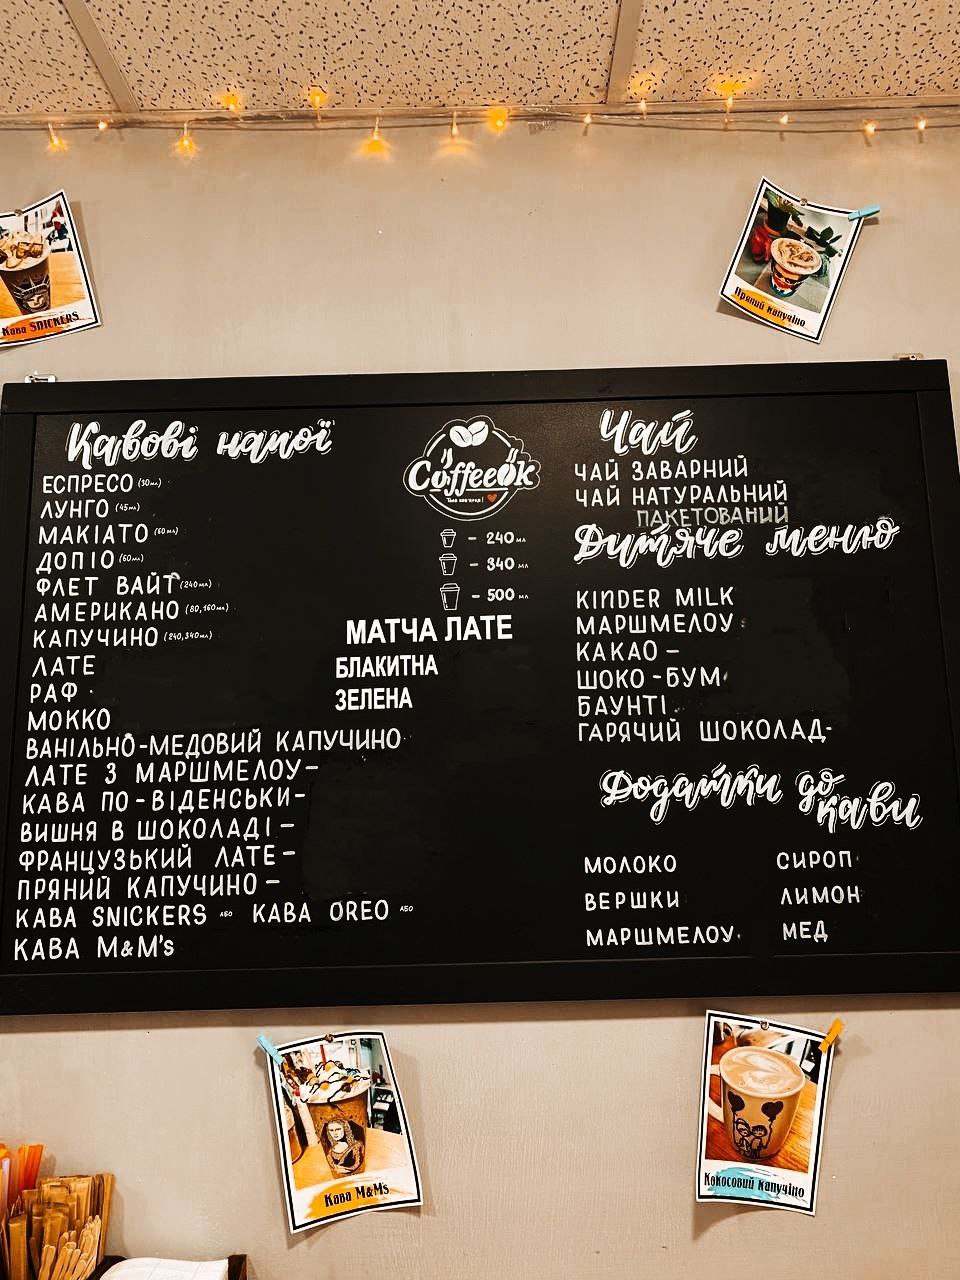 Кава SNICKERS
Пряний капучіно
Кавові напої
ЕСПРЕСО (30мл)
ЛУНГО (45мл)
МАКІАТО (60мл)
ДОПІО (60мл)
ФЛЕТ ВАЙТ (240мл)
АМЕРИКАНО (80,160мл)
КАПУЧИНО (240,340мл)
ЛАТЕ
РАФ
МОККО
ВАНІЛЬНО-МЕДОВИЙ КАПУЧИНО
ЛАТЕ З МАРШМЕЛОУ-
КАВА ПО-ВІДЕНСЬКИ-
ВИШНЯ В ШОКОЛАДІ-
ФРАНЦУЗЬКИЙ ЛАТЕ-
ПРЯНИЙ КАПУЧИНО-
КАВА SNICKERS АБО КАВА OREO АБО
КАВА M&M's
CoffeeOk
- 240 мл
- 340 мл
- 500 мл
МАТЧА ЛАТЕ
БЛАКИТНА
ЗЕЛЕНА
Чай
ЧАЙ ЗАВАРНИЙ
ЧАЙ НАТУРАЛЬНИЙ
ПАКЕТОВАНИЙ
Дитяче меню
KINDER MILK
МАРШМЕЛОУ
КАКАО -
ШОКО-БУМ
БАУНТІ
ГАРЯЧИЙ ШОКОЛАД-
Додатки до
кави
МОЛОКО СИРОП
ВЕРШКИ ЛИМОН
МАРШМЕЛОУ МЕД
Кава M&M's
Кокосовий капучіно